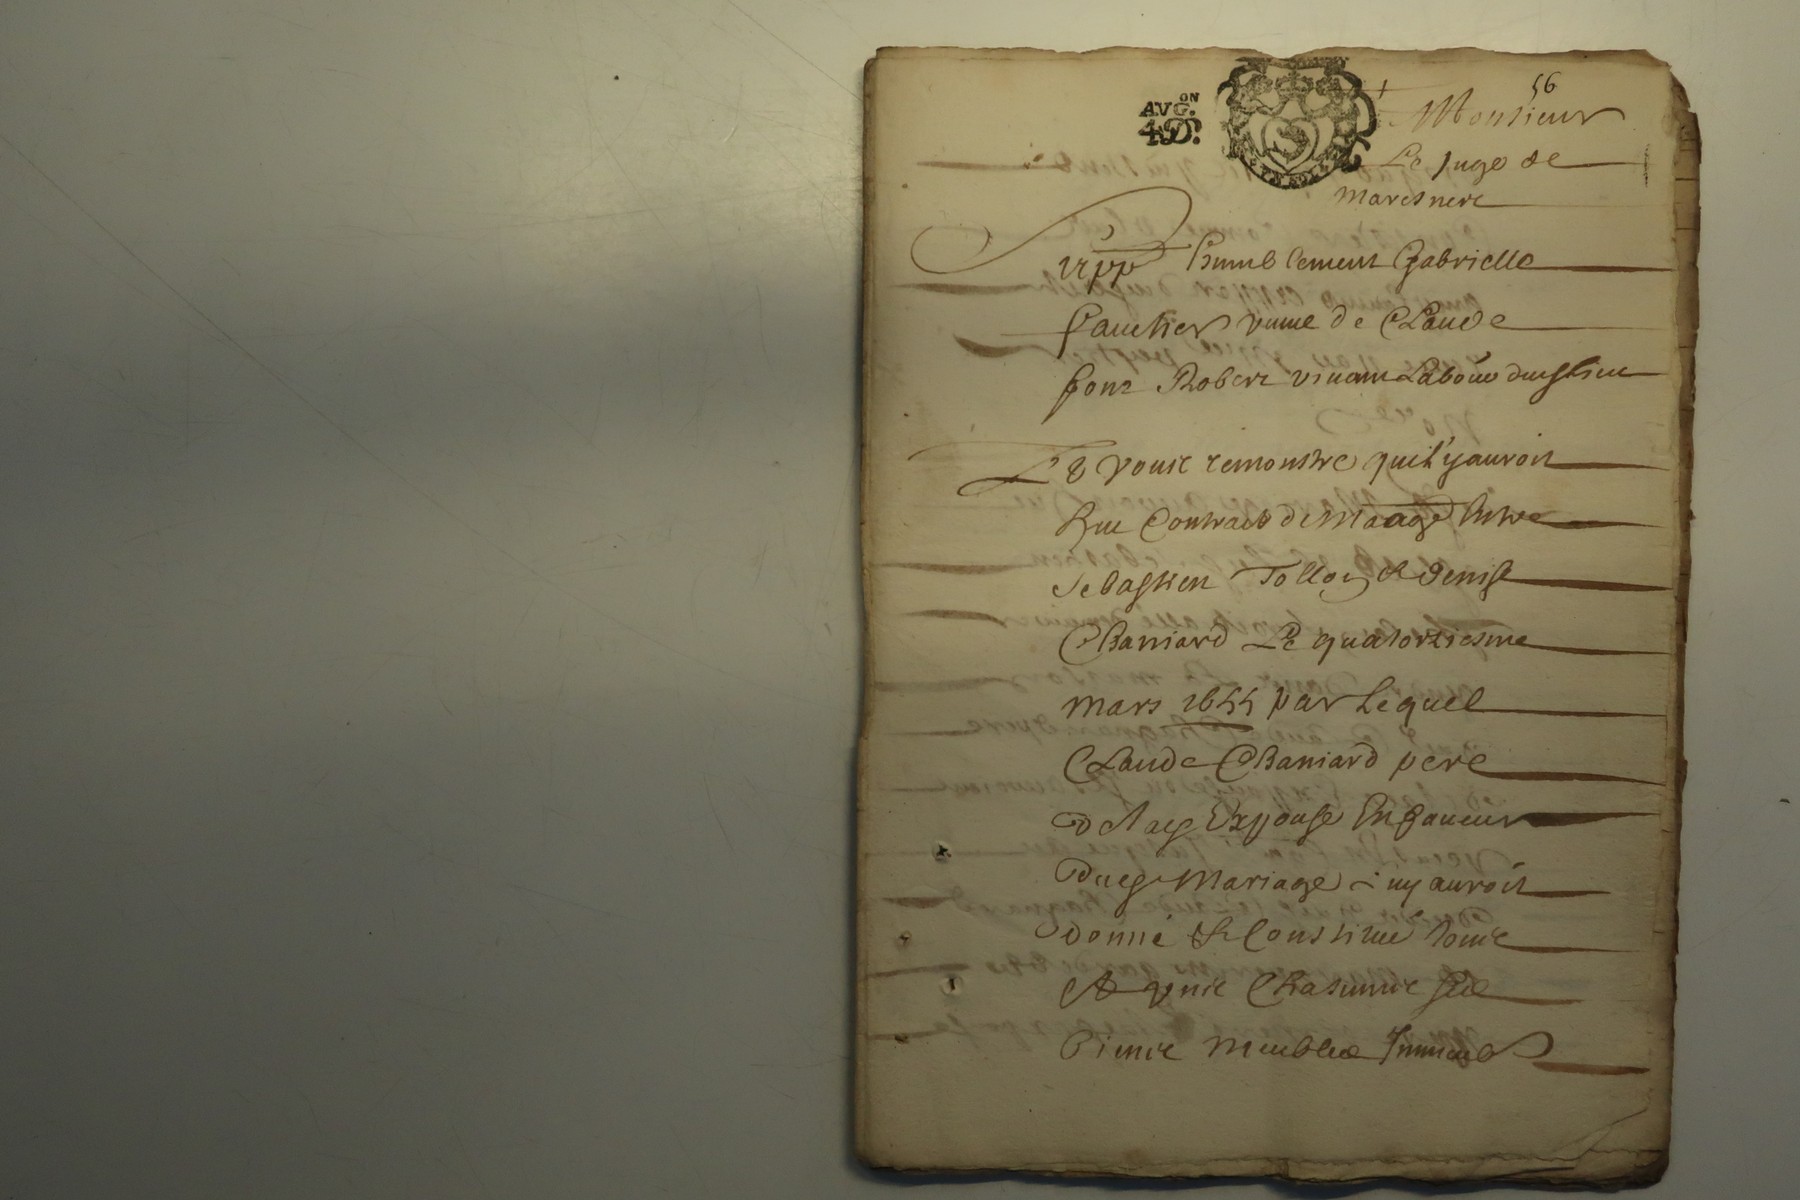 56
AVG.ON
4.D.
Monsieur
Le juge de
marcsnere
Supp humblement Gabrielle
Gautier vuiue de Claude
font Robert viuant Labour dud lieu
Et vous remonstre quil y auroit
heu Contract de Maage Entre
Sebastien Tolloy & denise
Chaniard Le quatorziesme
mars 1655 par Lequel
Claude Chaniard pere
de lad Expouse En faueur
dud Mariage Luy auroit
donné & Constitué toute
Et vnne Chascunne ses
bienne meubles Immeubs